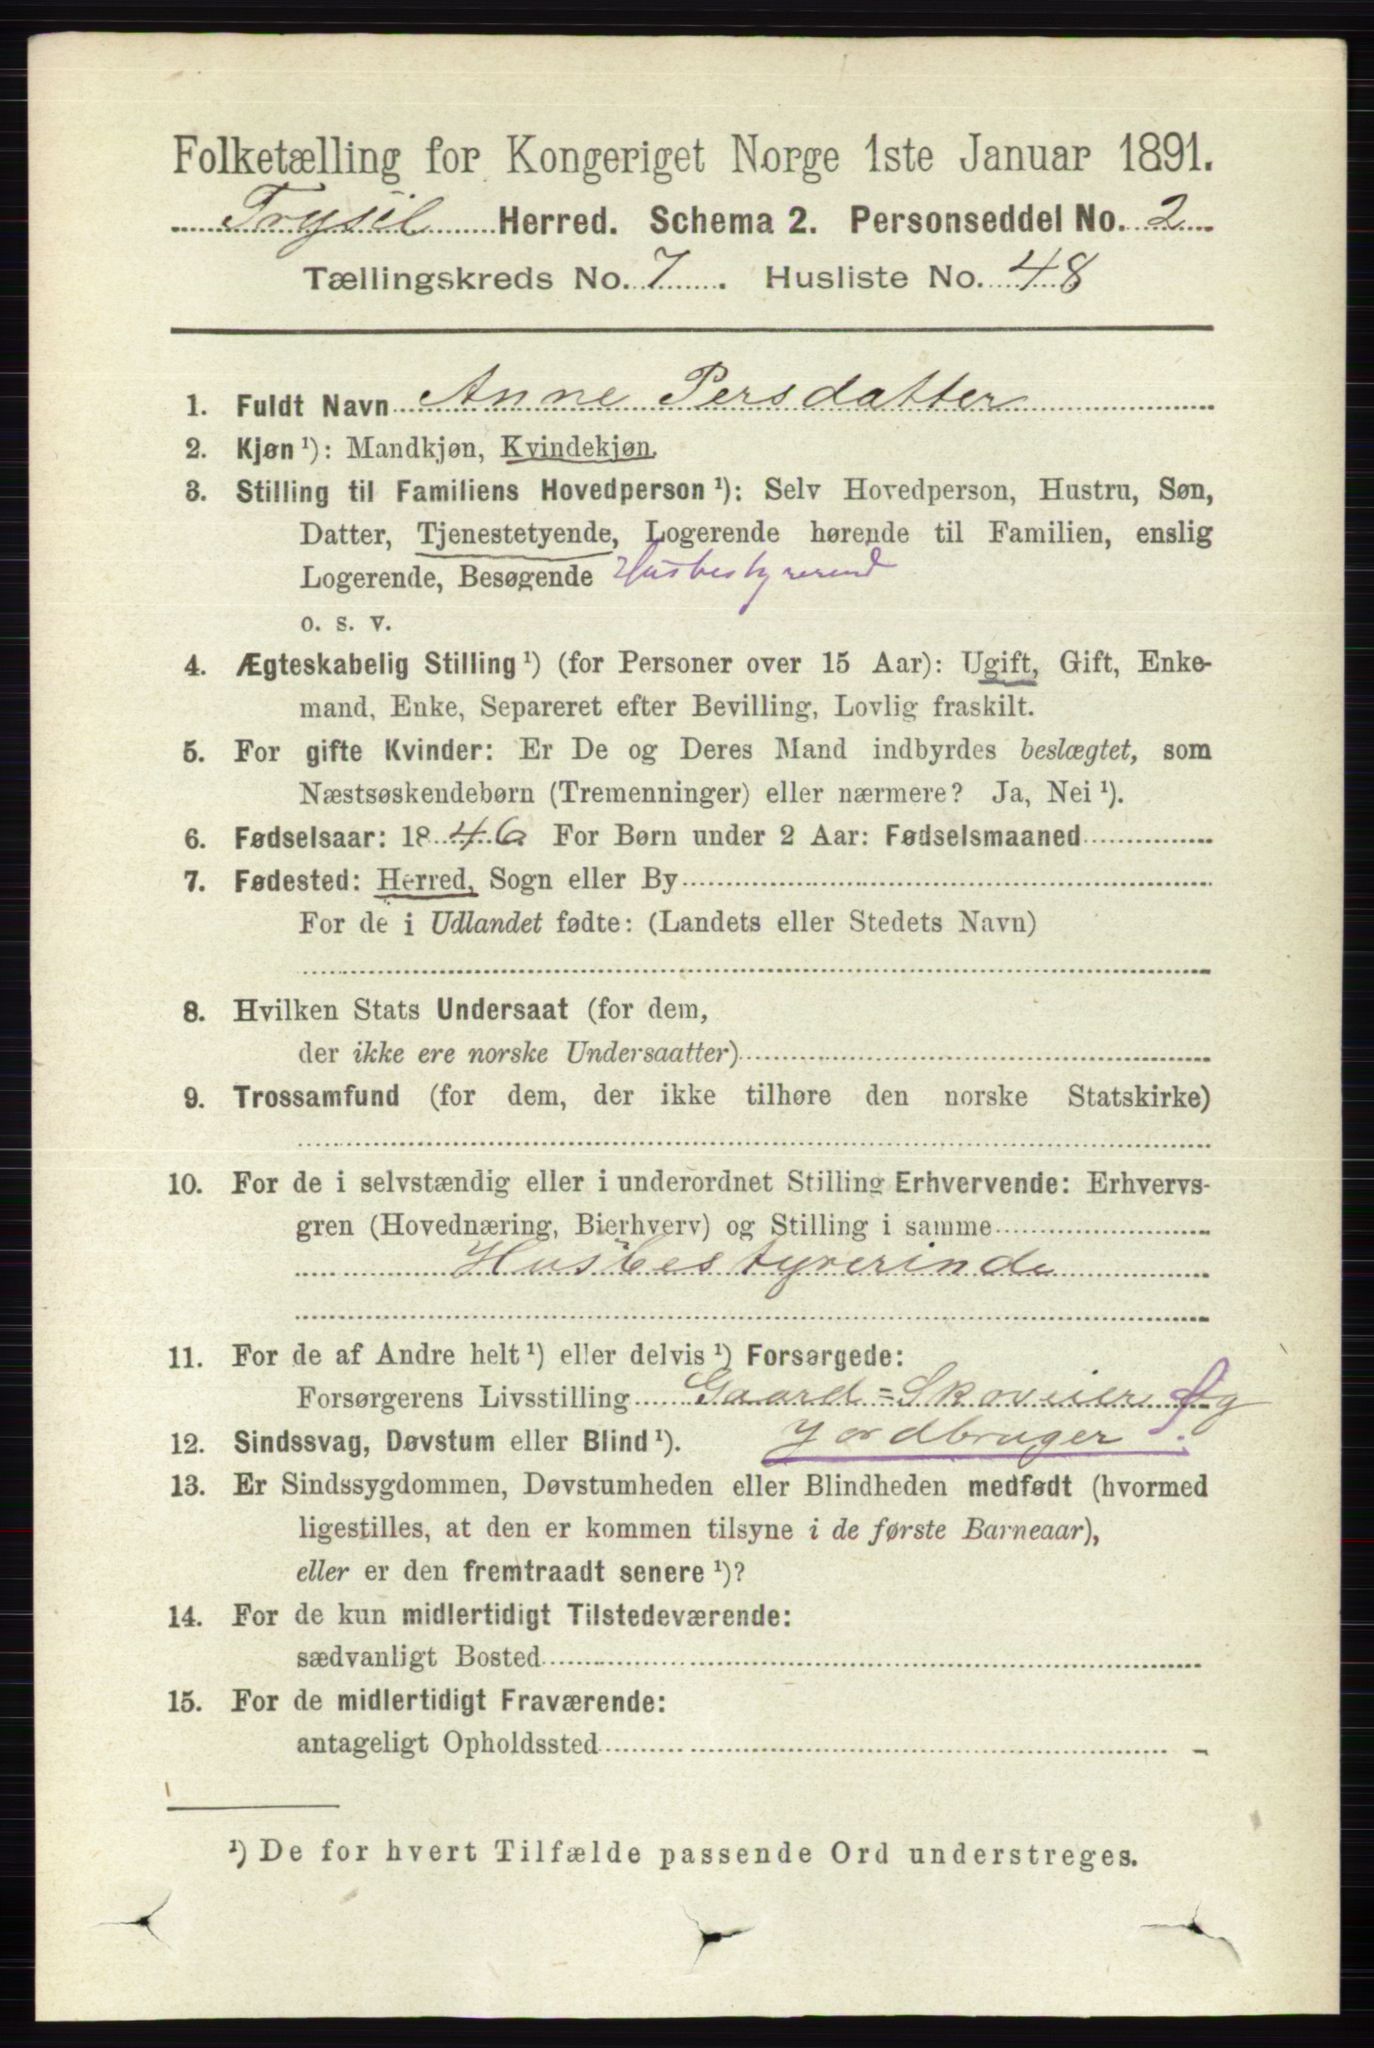 Folketælling for Kongeriget Norge 1ste Januar 1891.
Trysil Herred. Schema 2. Personseddel No. 2
Tællingskreds No. 7. Husliste No. 48
1. Fuldt Navn Anne Persdatter
2. Kjøn ¹): Mandkjøn, Kvindekjøn.
3. Stilling til Familiens Hovedperson ¹): Selv Hovedperson, Hustru, Søn,
Datter, Tjenestetyende, Logerende hørende til Familien, enslig
Logerende, Besøgende Husbestyrerind
o. s. v.
4. Ægteskabelig Stilling ¹) (for Personer over 15 Aar): Ugift, Gift, Enke-
mand, Enke, Separeret efter Bevilling, Lovlig fraskilt.
5. For gifte Kvinder: Er De og Deres Mand indbyrdes beslægtet, som
Næstsøskendebørn (Tremenninger) eller nærmere? Ja, Nei ¹).
6. Fødselsaar: 1846 For Børn under 2 Aar: Fødselsmaaned
7. Fødested: Herred, Sogn eller By
For de i Udlandet fødte: (Landets eller Stedets Navn)
8. Hvilken Stats Undersaat (for dem,
der ikke ere norske Undersaatter)
9. Trossamfund (for dem, der ikke tilhøre den norske Statskirke)
10. For de i selvstændig eller i underordnet Stilling Erhvervende: Erhvervs-
gren (Hovednæring, Bierhverv) og Stilling i samme
Husbestyrerinde
11. For de af Andre helt ¹) eller delvis ¹) Forsørgede:
Forsørgerens Livsstilling Gaard=Skoveier og
12. Sindssvag, Døvstum eller Blind ¹). Jordbruger
13. Er Sindssygdommen, Døvstumheden eller Blindheden medfødt (hvormed
ligestilles, at den er kommen tilsyne i de første Barneaar),
eller er den fremtraadt senere ¹)?
14. For de kun midlertidigt Tilstedeværende:
sædvanligt Bosted
15. For de midlertidigt Fraværende:
antageligt Opholdssted
¹) De for hvert Tilfælde passende Ord understreges.